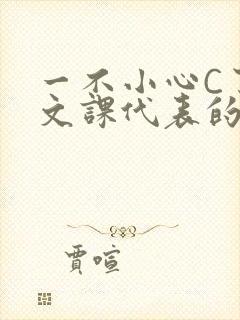 一不小心C
文課代表的
賈喧